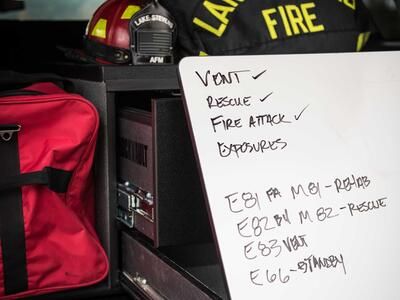 LAKE STEVENS
AFM
LAKE
FIRE
VENT ✓
RESCUE ✓
FIRE ATTACK ✓
EXPOSURES
E81 FA M81-REHAB
E82 BU M82-RESCUE
E83 VENT
E66-STANDBY